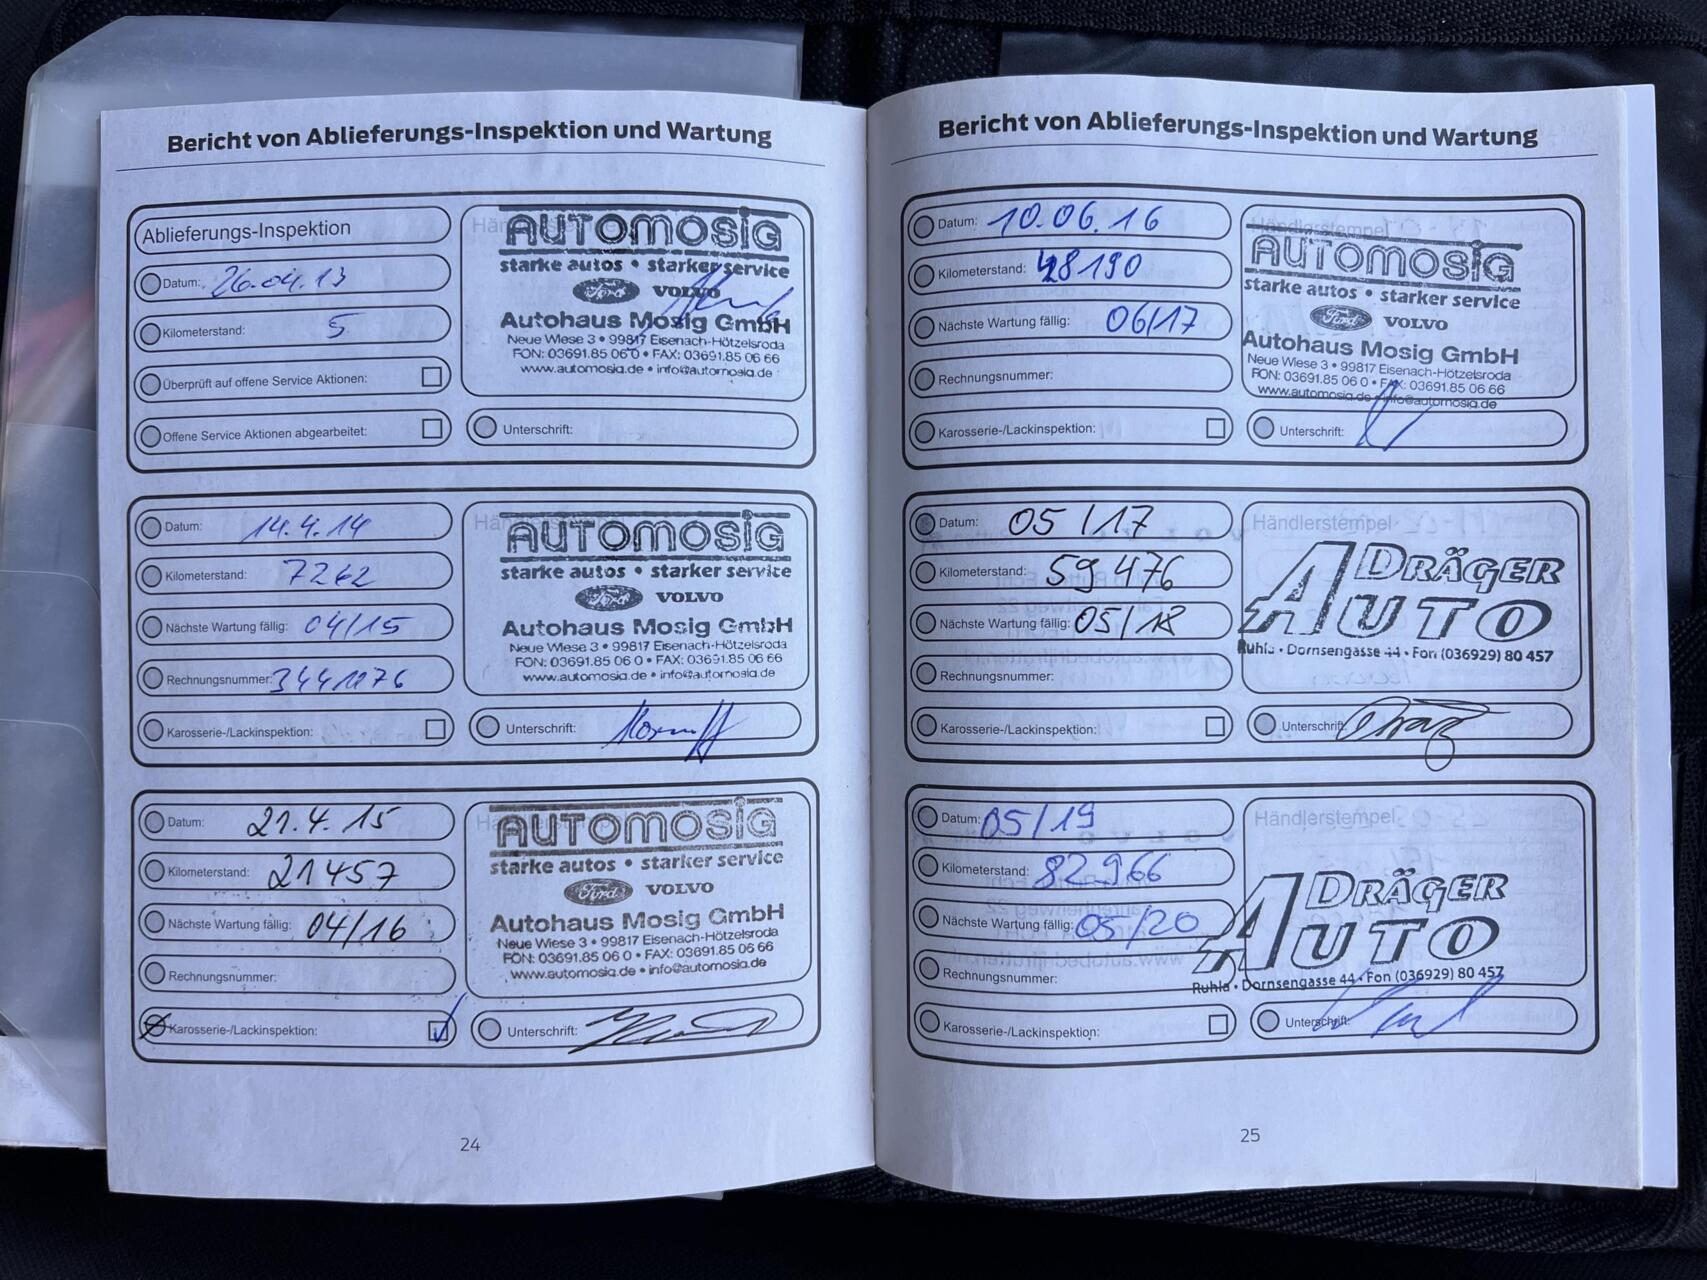 Bericht von Ablieferungs-Inspektion und Wartung
Ablieferungs-Inspektion
Datum: 26.04.13
Kilometerstand: 5
Überprüft auf offene Service Aktionen:
Offene Service Aktionen abgearbeitet:
AUTOMOSIG
starke autos • starker service
Ford VOLVO
Autohaus Mosig GmbH
Neue Wiese 3 • 99817 Eisenach-Hötzelsroda
FON: 03691.85 06 0 • FAX: 03691.85 06 66
www.automosig.de • info@automosig.de
Unterschrift:
Datum: 14.4.14
Kilometerstand: 7262
Nächste Wartung fällig: 04/15
Rechnungsnummer: 3441176
Karosserie-/Lackinspektion:
AUTOMOSIG
starke autos • starker service
Ford VOLVO
Autohaus Mosig GmbH
Neue Wiese 3 • 99817 Eisenach-Hötzelsroda
FON: 03691.85 06 0 • FAX: 03691.85 06 66
www.automosig.de • info@automosig.de
Unterschrift:
Datum: 21.4.15
Kilometerstand: 21457
Nächste Wartung fällig: 04/16
Rechnungsnummer:
Karosserie-/Lackinspektion:
AUTOMOSIG
starke autos • starker service
Ford VOLVO
Autohaus Mosig GmbH
Neue Wiese 3 • 99817 Eisenach-Hötzelsroda
FON: 03691.85 06 0 • FAX: 03691.85 06 66
www.automosig.de • info@automosig.de
Unterschrift:
24
Bericht von Ablieferungs-Inspektion und Wartung
Datum: 10.06.16
Kilometerstand: 48190
Nächste Wartung fällig: 06/17
Rechnungsnummer:
Karosserie-/Lackinspektion:
Händlerstempel
AUTOMOSIG
starke autos • starker service
Ford VOLVO
Autohaus Mosig GmbH
Neue Wiese 3 • 99817 Eisenach-Hötzelsroda
FON: 03691.85 06 0 • FAX: 03691.85 06 66
www.automosig.de • info@automosig.de
Unterschrift:
Datum: 05/17
Kilometerstand: 59476
Nächste Wartung fällig: 05/18
Rechnungsnummer:
Karosserie-/Lackinspektion:
Händlerstempel
DRÄGER
AUTO
Ruhla • Dornsengasse 44 • Fon (036929) 80 457
Unterschrift:
Datum: 05/19
Kilometerstand: 82966
Nächste Wartung fällig: 05/20
Rechnungsnummer:
Karosserie-/Lackinspektion:
Händlerstempel
DRÄGER
AUTO
Ruhla • Dornsengasse 44 • Fon (036929) 80 457
Unterschrift:
25